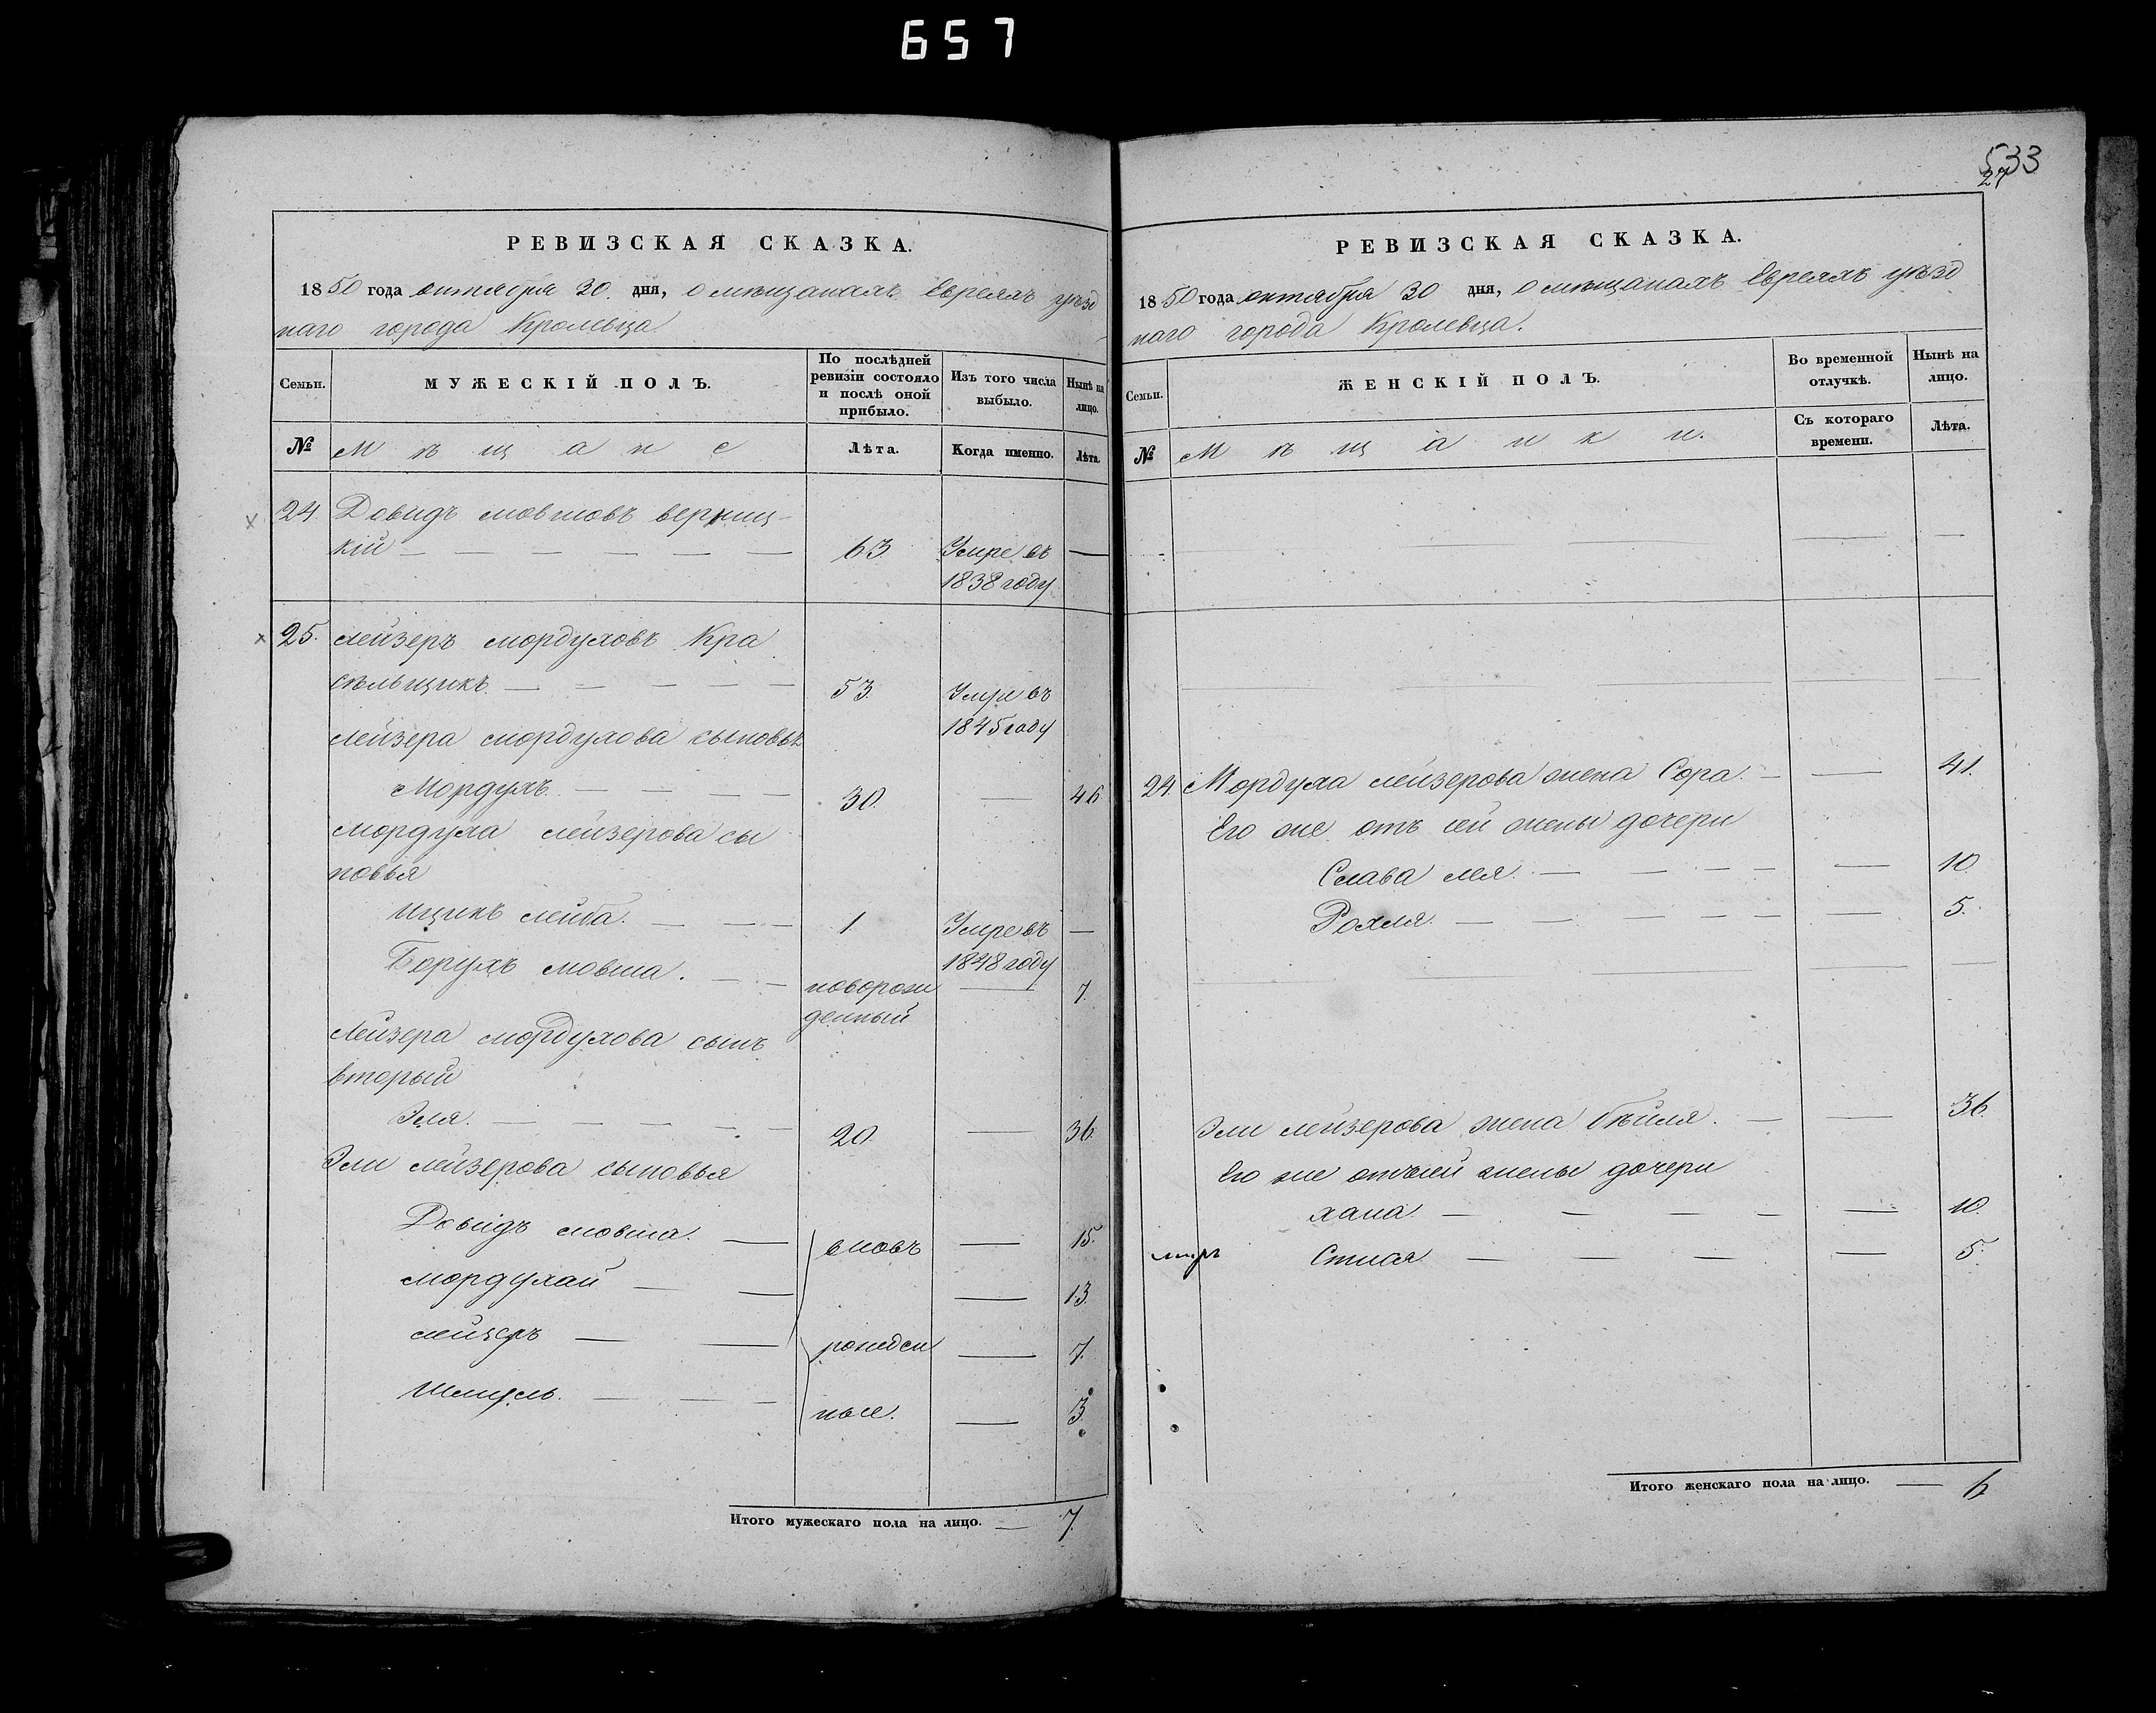 657
РЕВИЗСКАЯ СКАЗКА.
1850 года октября 30. дня, о мѣщанахъ Евреяхъ уѣзд
наго города Кролевца.
Семьи.
МУЖЕСКІЙ ПОЛЪ.
По послѣдней ревизіи состояло и послѣ оной прибыло.
Изъ того числа выбыло.
Нынѣ на лицо.
№
Мѣщане
Лѣта.
Когда именно.
Лѣта.
24. Довидъ мовшовъ
кій 63 Умре въ
1838 году
25. лейзеръ мордуховъ Кра
сѣльщикъ. 53. Умре въ
1845 году
лейзера мордухова сыновья
Мордухъ. 30. 46
мордуха лейзерова сы
новья
ицикъ лейба. 1 Умре въ
1848 году
Борухъ мовша. новорож 7.
денный
Лейзера мордухова сынъ
вторый
Эля. 20. 36.
Эли лейзерова сыновья
Довидъ мовша. вновь 15.
мордухай 13.
лейзеръ рожден 7.
Шмуль. ные. 3.
Итого мужескаго пола на лицо. 7.
533
27
РЕВИЗСКАЯ СКАЗКА.
1850 года октября 30 дня, о мѣщанахъ Евреяхъ уѣзд
наго города Кролевца.
Семьи.
ЖЕНСКІЙ ПОЛЪ.
Во временной отлучкѣ.
Нынѣ на лицо.
№
Мѣщанки.
Съ котораго времени.
Лѣта.
24. Мордуха лейзерова жена Сора. 41.
Его же отъ сей жены дочери
Слава лея. 10.
Рохля. 5.
Эли лейзерова жена бейля. 36.
Его же отъ сей жены дочери
хана. 10.
Стися 5.
Итого женскаго пола на лицо. 6